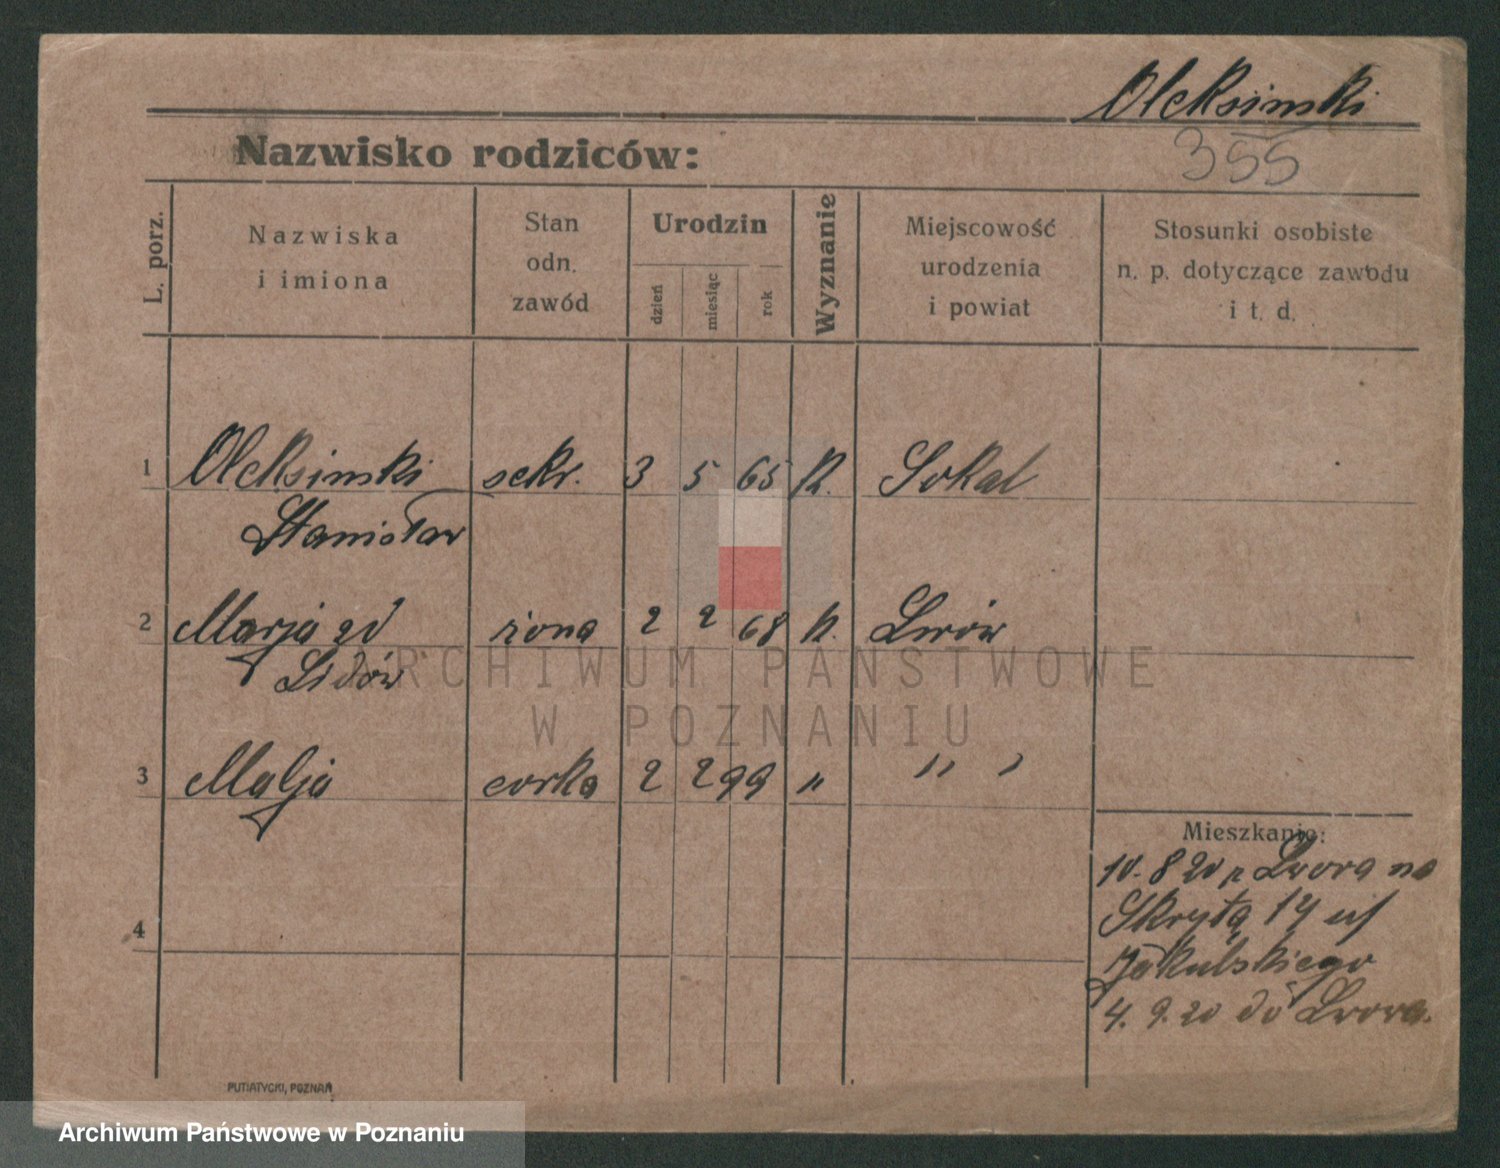 Oleksinski
355
Nazwisko rodziców:
L. porz.
Nazwiska
i imiona
Stan
odn.
zawód
Urodzin
dzień
miesiąc
rok
Wyznanie
Miejscowość
urodzenia
i powiat
Stosunki osobiste
n. p. dotyczące zawodu
i t. d.
1 Oleksinski sekr. 3 5 65 K. Sokal
Stanisław
2 Marja zd żona 2 2 68 K. Lwów
3 Malja corka 2 2 99 " " "
Mieszkanie:
10. 8 20 z Lwowa na
Skrytą 14 u/
Jakubskiego
4. 9. 20 do Lwowa.
4
PUTIATYCKI, POZNAŃ
ARCHIWUM PAŃSTWOWE
W POZNANIU
Archiwum Państwowe w Poznaniu